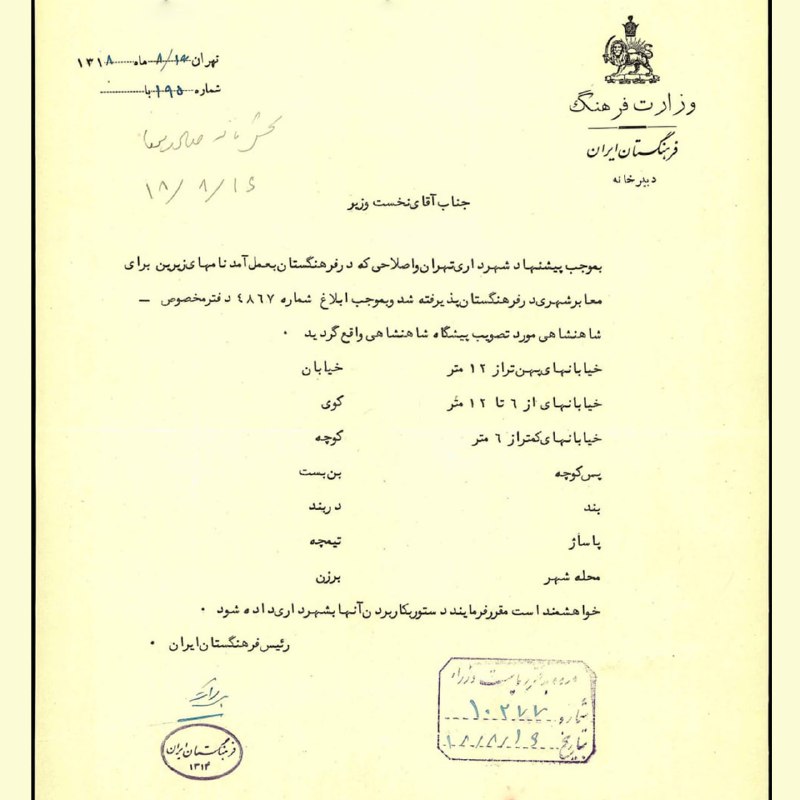 وزارت فرهنگ
فرهنگستان ایران
دبیرخانه
تهران ۸/۱۴ ماه ۱۳۱۸
شماره ۱۹۵ با
بخش نامه
۱۸/ ۸/ ۱۶
جناب آقای نخست وزیر
بموجب پیشنهاد شهرداری تهران و اصلاحی که در فرهنگستان بعمل آمد نامهای زیرین برای
معابر شهری در فرهنگستان پذیرفته شد و بموجب ابلاغ شماره ٤٨٦٧ دفتر مخصوص –
شاهنشاهی مورد تصویب پیشگاه شاهنشاهی واقع گردید .
خیابانهای پهن تر از ۱۲ متر خیابان
خیابانهای از ٦ تا ۱۲ متر کوی
خیابانهای کمتر از ٦ متر کوچه
پس کوچه بن بست
بند دربند
پاساژ تیمچه
محله شهر برزن
خواهشمند است مقرر فرمایند دستور بکار بردن آنها بشهرداری داده شود .
رئیس فرهنگستان ایران .
فرهنگستان ایران
۱۳۱۴
ریاست وزراء
شماره ۱۰۲۷۷
بتاریخ ۱۸/۸/۱۶